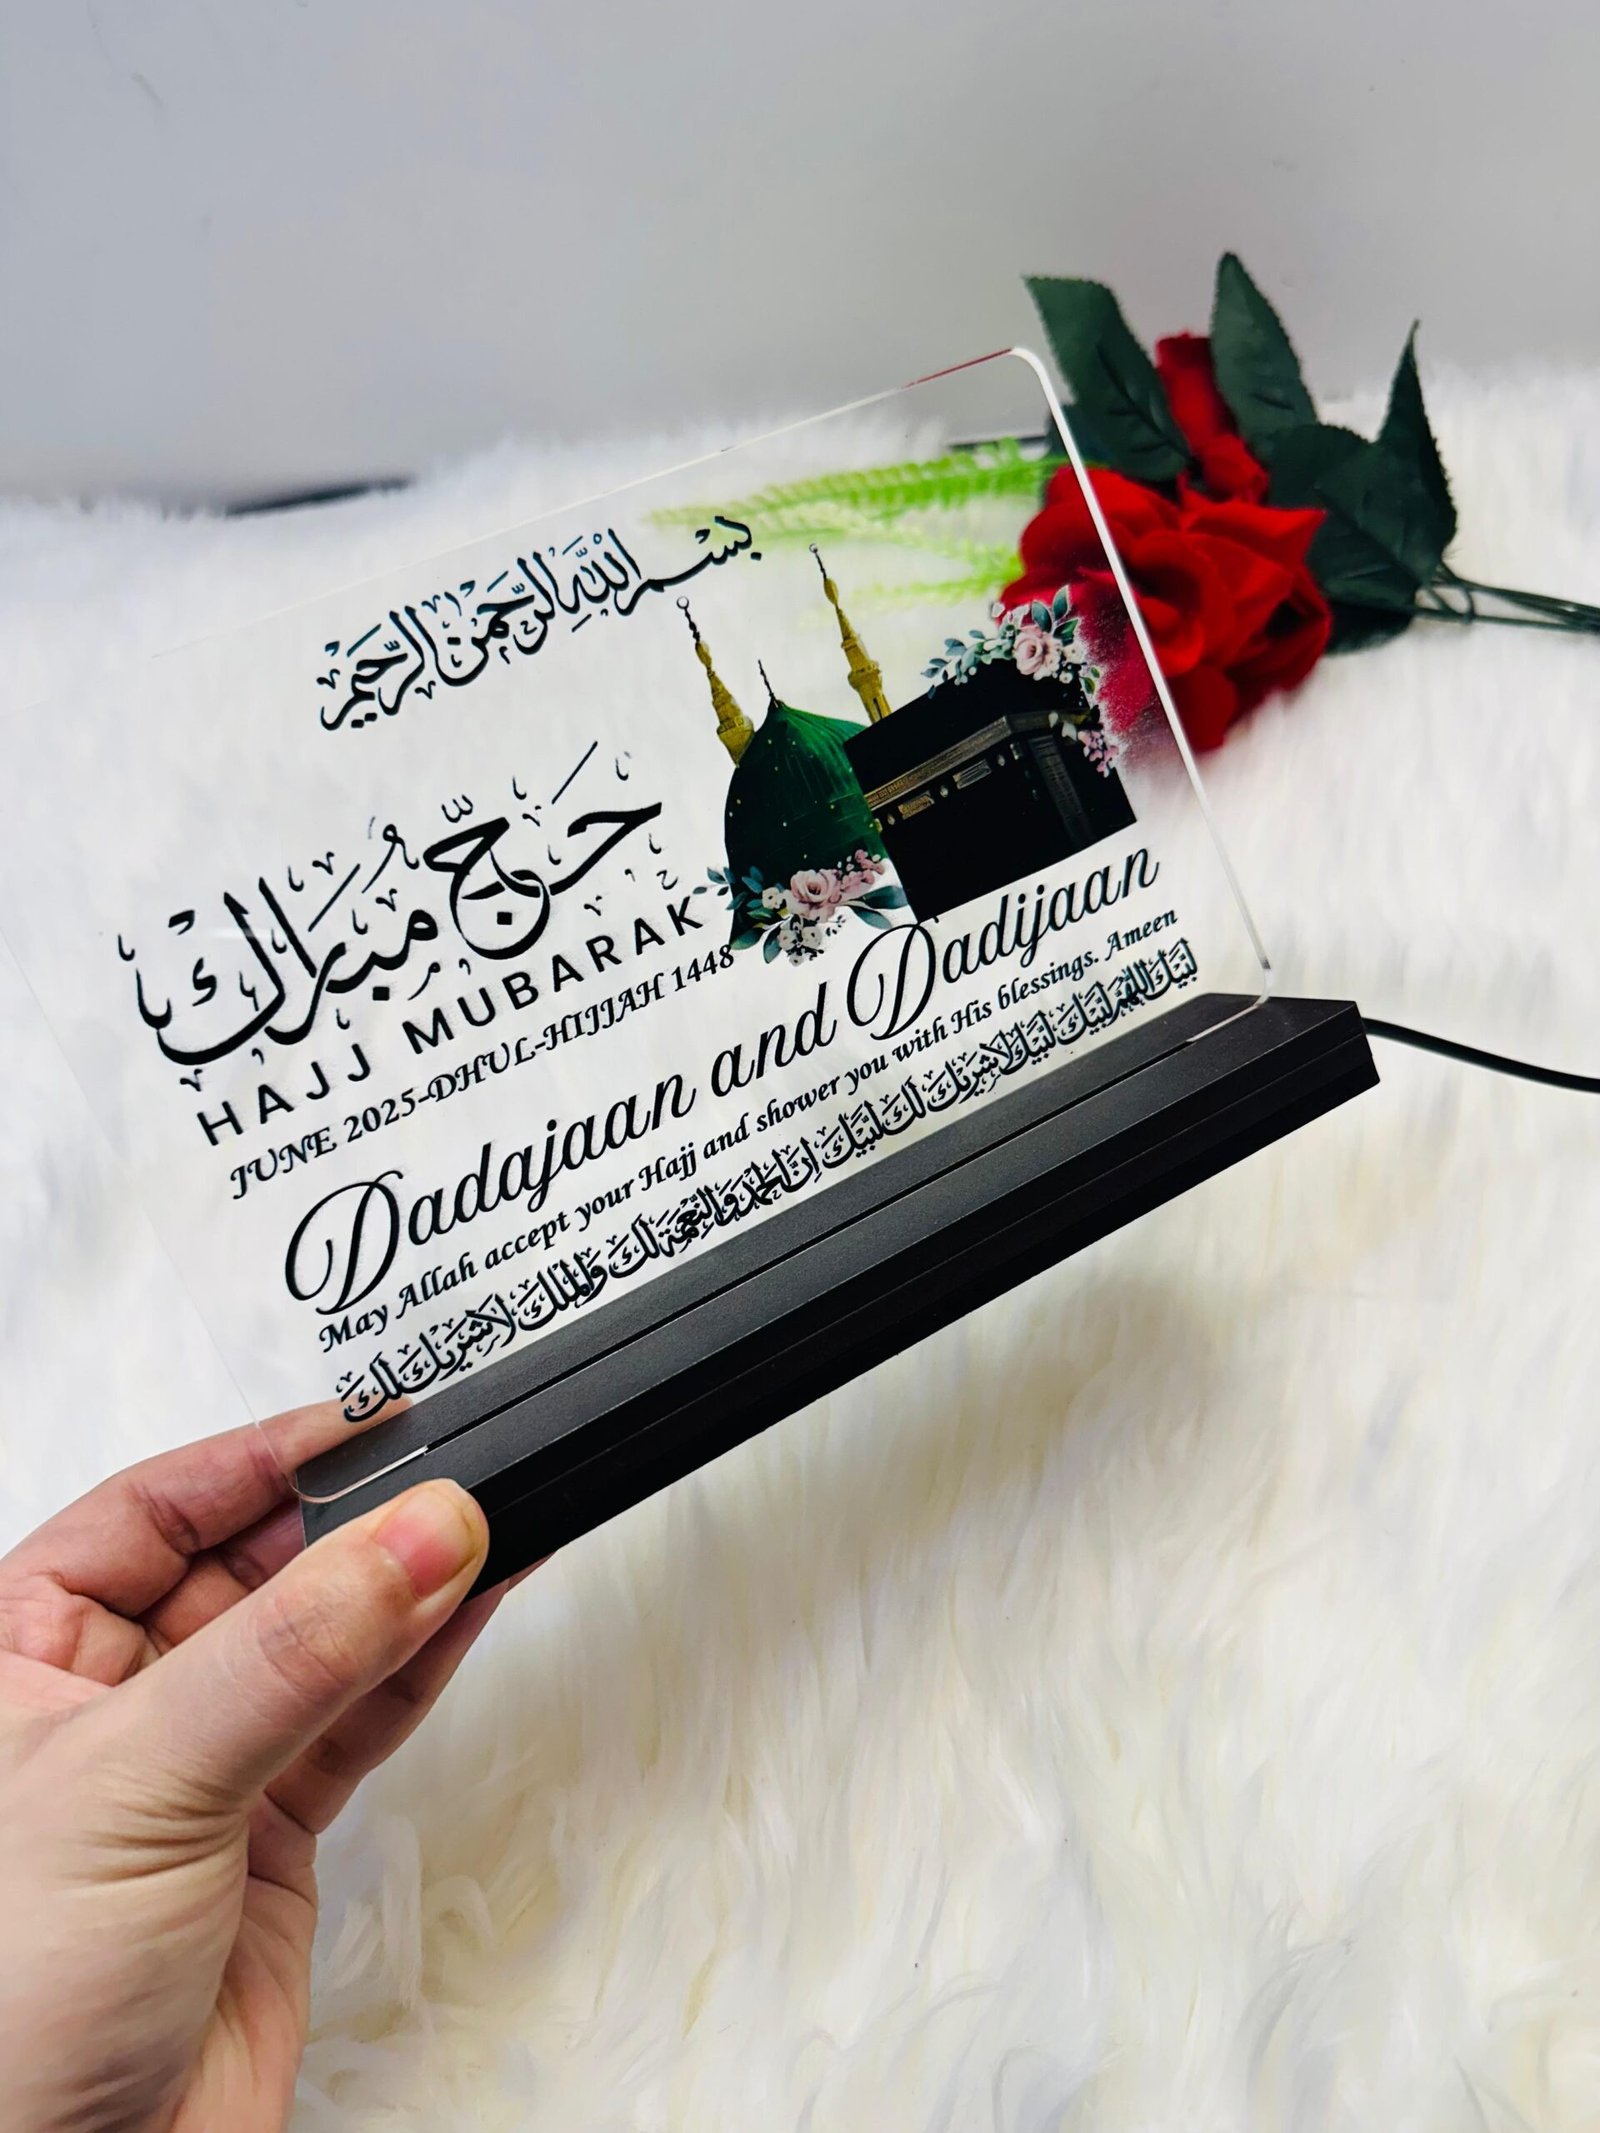 بسم الله الرحمن الرحيم
حَجّ مُبَارَك
HAJJ MUBARAK
JUNE 2025-DHUL-HIJJAH 1448
Dadajaan and Dadijaan
May Allah accept your Hajj and shower you with His blessings. Ameen
لَبَّيْكَ اللَّهُمَّ لَبَّيْكَ لَبَّيْكَ لَا شَرِيْكَ لَكَ لَبَّيْكَ اِنَّ الْحَمْدَ وَالنِّعْمَةَ لَكَ وَالْمُلْكَ لَا شَرِيْكَ لَكَ